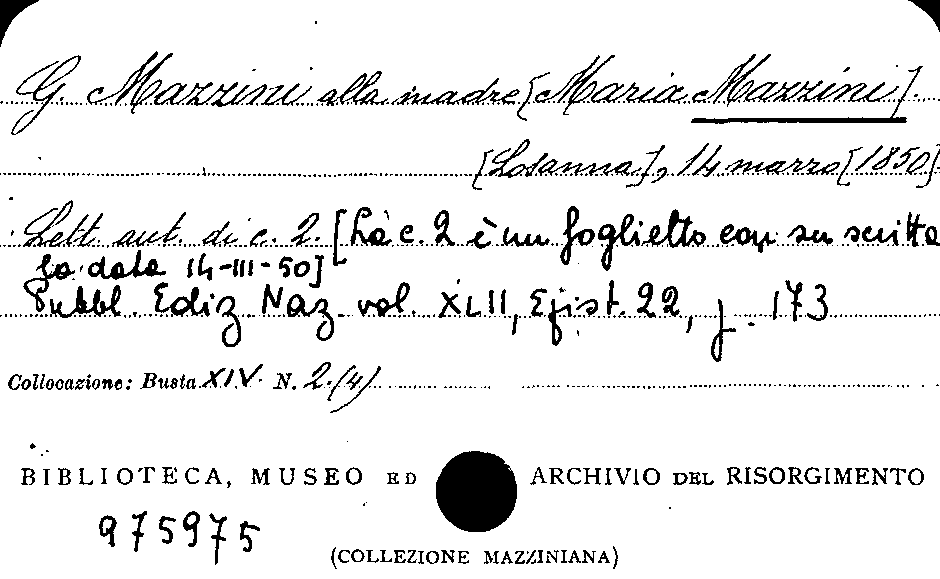 G. Mazzini alla madre [Maria Mazzini].
[Losanna], 14 marzo [1850]
Lett. aut. di c. 2. [La c. 2 è un foglietto con su scritta
la data 14-III-50]
Pubbl. Ediz. Naz. vol. XLII, Epist. 22, p. 173
Collocazione: Busta XIV. N. 2.(4)
BIBLIOTECA, MUSEO ED ARCHIVIO DEL RISORGIMENTO
975975
(COLLEZIONE MAZZINIANA)